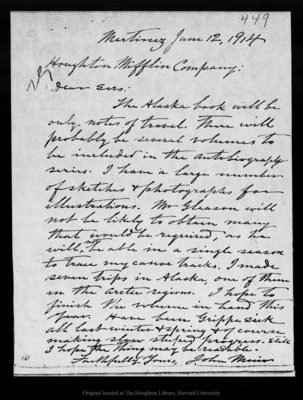 449
Martinez June 12, 1914
Houghton Mifflin Company:
Dear Sirs:
The Alaska book will be
only notes of travel. There will
probably be several volumes to
be included in the autobiography
series. I have a large number
of sketches & photographs for
illustrations. Mr Gleason will
not be likely to obtain many
that would be required, as he
will not be able in a single season
to trace my canoe tracks. I made
seven trips in Alaska, one of them
in the Arctic regions. I hope to
finish the volume in hand this
year. Have been Grippe sick
all last winter & spring & of course
making slow progress. Still
I hope the thing may be readable.
Faithfully Yours, John Muir
Original located at The Houghton Library, Harvard University